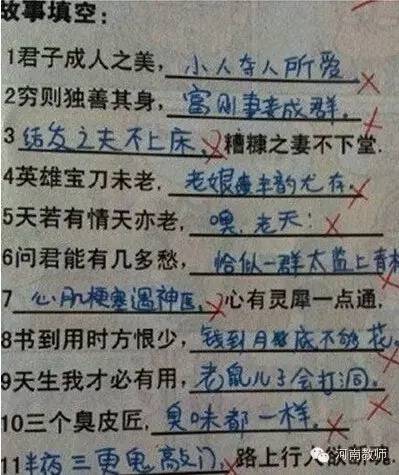 故事填空：
1君子成人之美，小人夺人所爱
2穷则独善其身，富则妻妾成群。
3结发之夫不上床，糟糠之妻不下堂.
4英雄宝刀未老，老娘丰韵尤存。
5天若有情天亦老，噢，老天！
6问君能有几多愁，恰似一群太监上青
7心肌梗塞遇神医，心有灵犀一点通.
8书到用时方恨少，钱到月底不够花。
9天生我才必有用，老鼠儿子会打洞。
10三个臭皮匠，臭味都一样。
11半夜三更鬼敲门，路上行人欲断魂.
河南教师